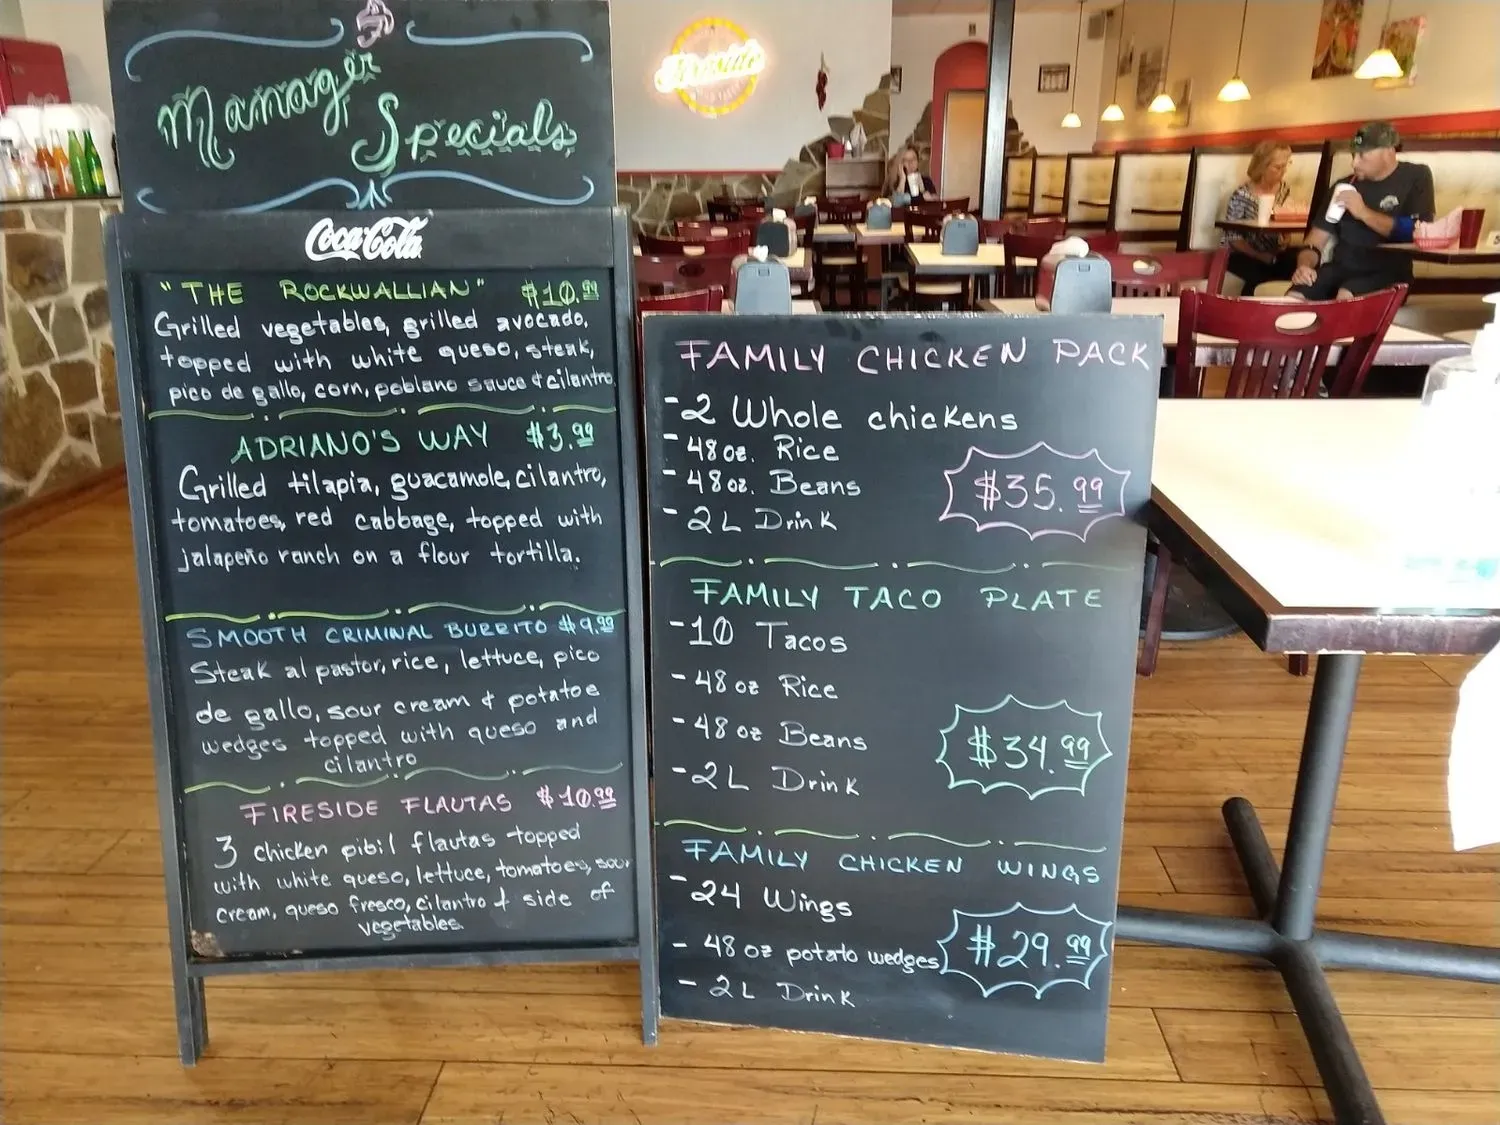 Manager
Specials
Coca-Cola
"THE ROCKWALLIAN" $10.99
Grilled vegetables, grilled avocado,
topped with white queso, steak,
pico de gallo, corn, poblano sauce & cilantro.
ADRIANO'S WAY $3.99
Grilled tilapia, guacamole, cilantro,
tomatoes, red cabbage, topped with
jalapeño ranch on a flour tortilla.
SMOOTH CRIMINAL BURRITO $9.99
Steak al pastor, rice, lettuce, pico
de gallo, sour cream & potatoe
wedges topped with queso and
cilantro
FIRESIDE FLAUTAS $10.99
3 chicken pibil flautas topped
with white queso, lettuce, tomatoes, sour
cream, queso fresco, cilantro & side of
vegetables.
FAMILY CHICKEN PACK
-2 Whole chickens
-48 oz. Rice
-48 oz. Beans
-2 L Drink
$35.99
FAMILY TACO PLATE
-10 Tacos
-48 oz Rice
-48 oz Beans
-2 L Drink
$34.99
FAMILY CHICKEN WINGS
-24 Wings
- 48 oz potato wedges
- 2 L Drink
$29.99
Fireside